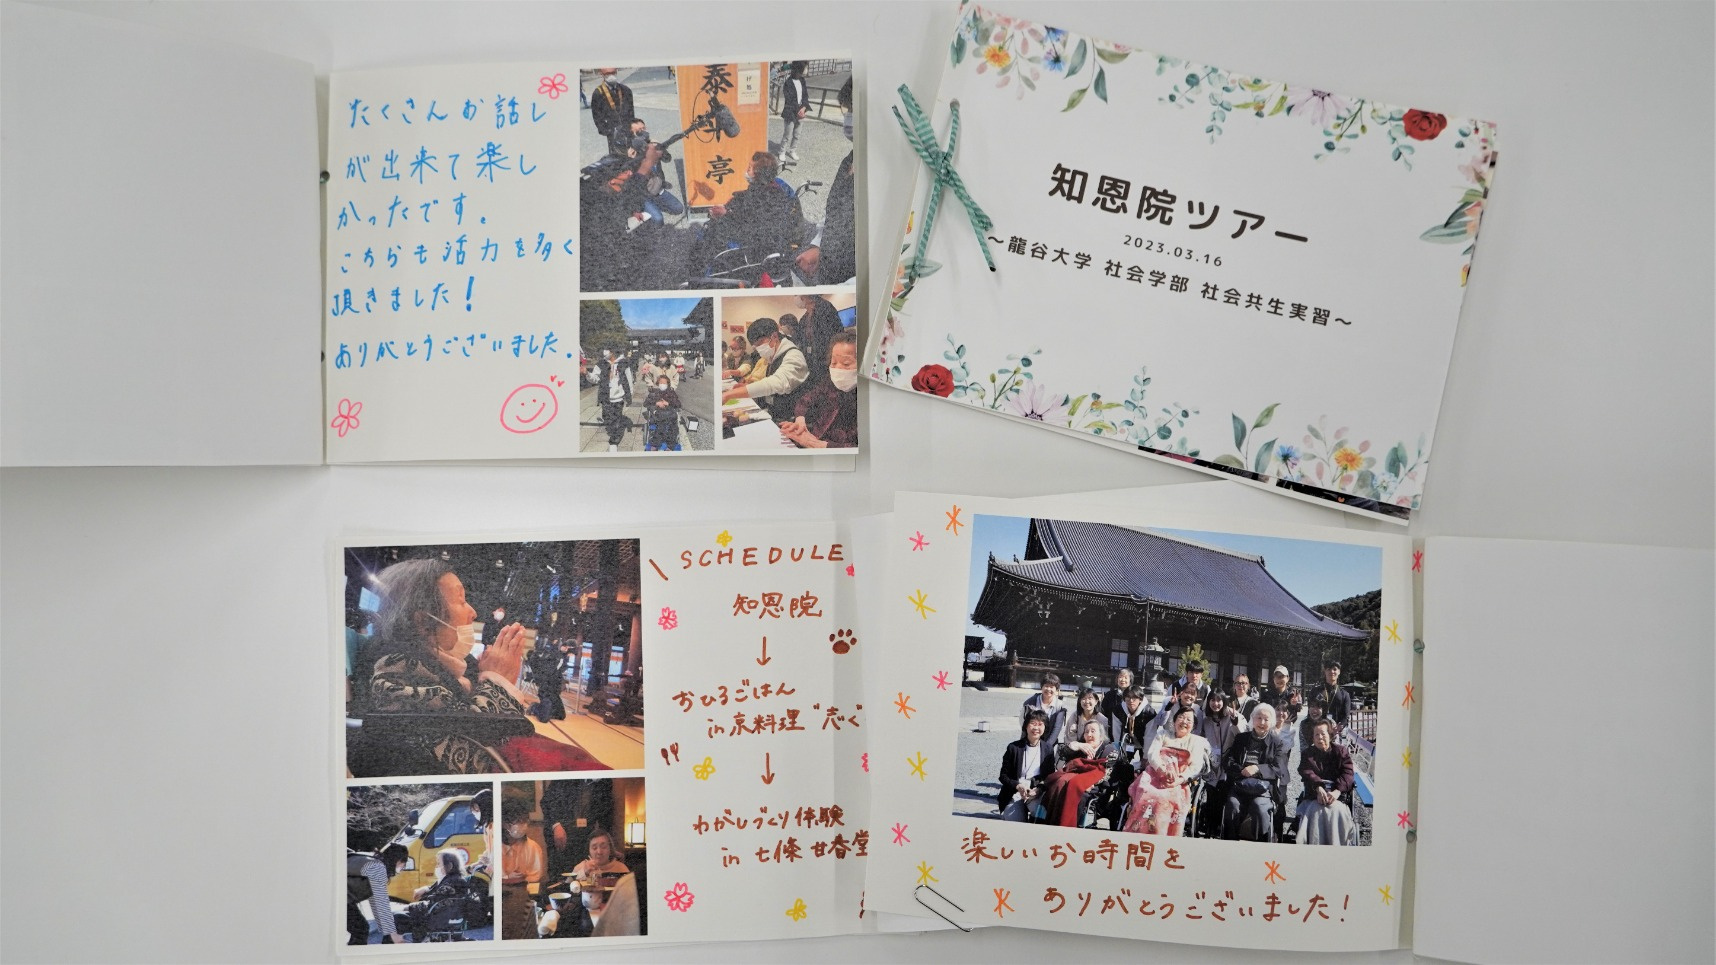 たくさんお話し
が出来て楽し
かったです。
こちらも活力を多く
頂きました!
ありがとうございました。
泰平亭
知恩院ツアー
2023.03.16
～龍谷大学 社会学部 社会共生実習～
\ SCHEDULE
知恩院
↓
おひるごはん
in 京料理 "志ぐ
↓
わがしづくり体験
in 七條 甘春堂
楽しいお時間を
ありがとうございました!